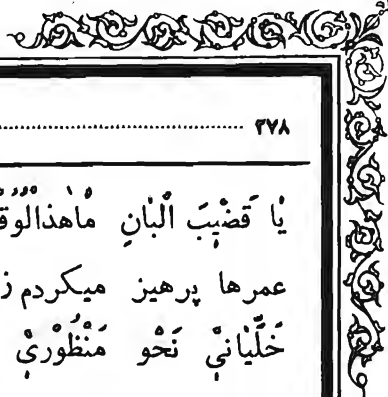 ۲۷۸
یٰا قَضْیٖبَ الْبٰانِ مٰاهٰذَالْوُقُ
عمرها پرهیز میکردم ز
خَلِّیٰانیْٖ نَحْو مَنْظُوریْٖ